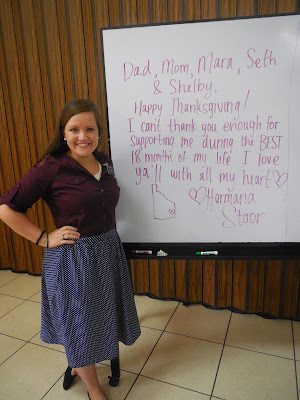 Dad, Mom, Mara, Seth
& Shelby.
Happy Thanksgiving!
I can't thank you enough for
supporting me during the BEST
18 months of my life I love
ya'll with all my heart
Hermana
Stoor